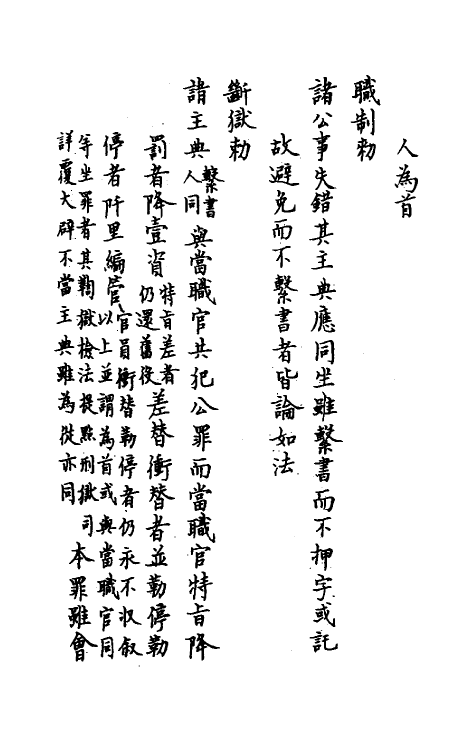 人為首
職制勑
諸公事失錯其主典應同坐雖繫書而不押字或託
故避免而不繫書者皆論如法
斷獄勑
諸主典繫書人同與當職官共犯公罪而當職官特旨降
罰者降壹資特旨差者仍還舊役差替衝替者並勒停勒
停者阡里編管官員衝替勒停者仍永不収叙以上並謂為首或與當職官同
等坐罪者其鞫獄檢法提點刑獄司詳覆大辟不當主典雖為從亦同本罪雖會